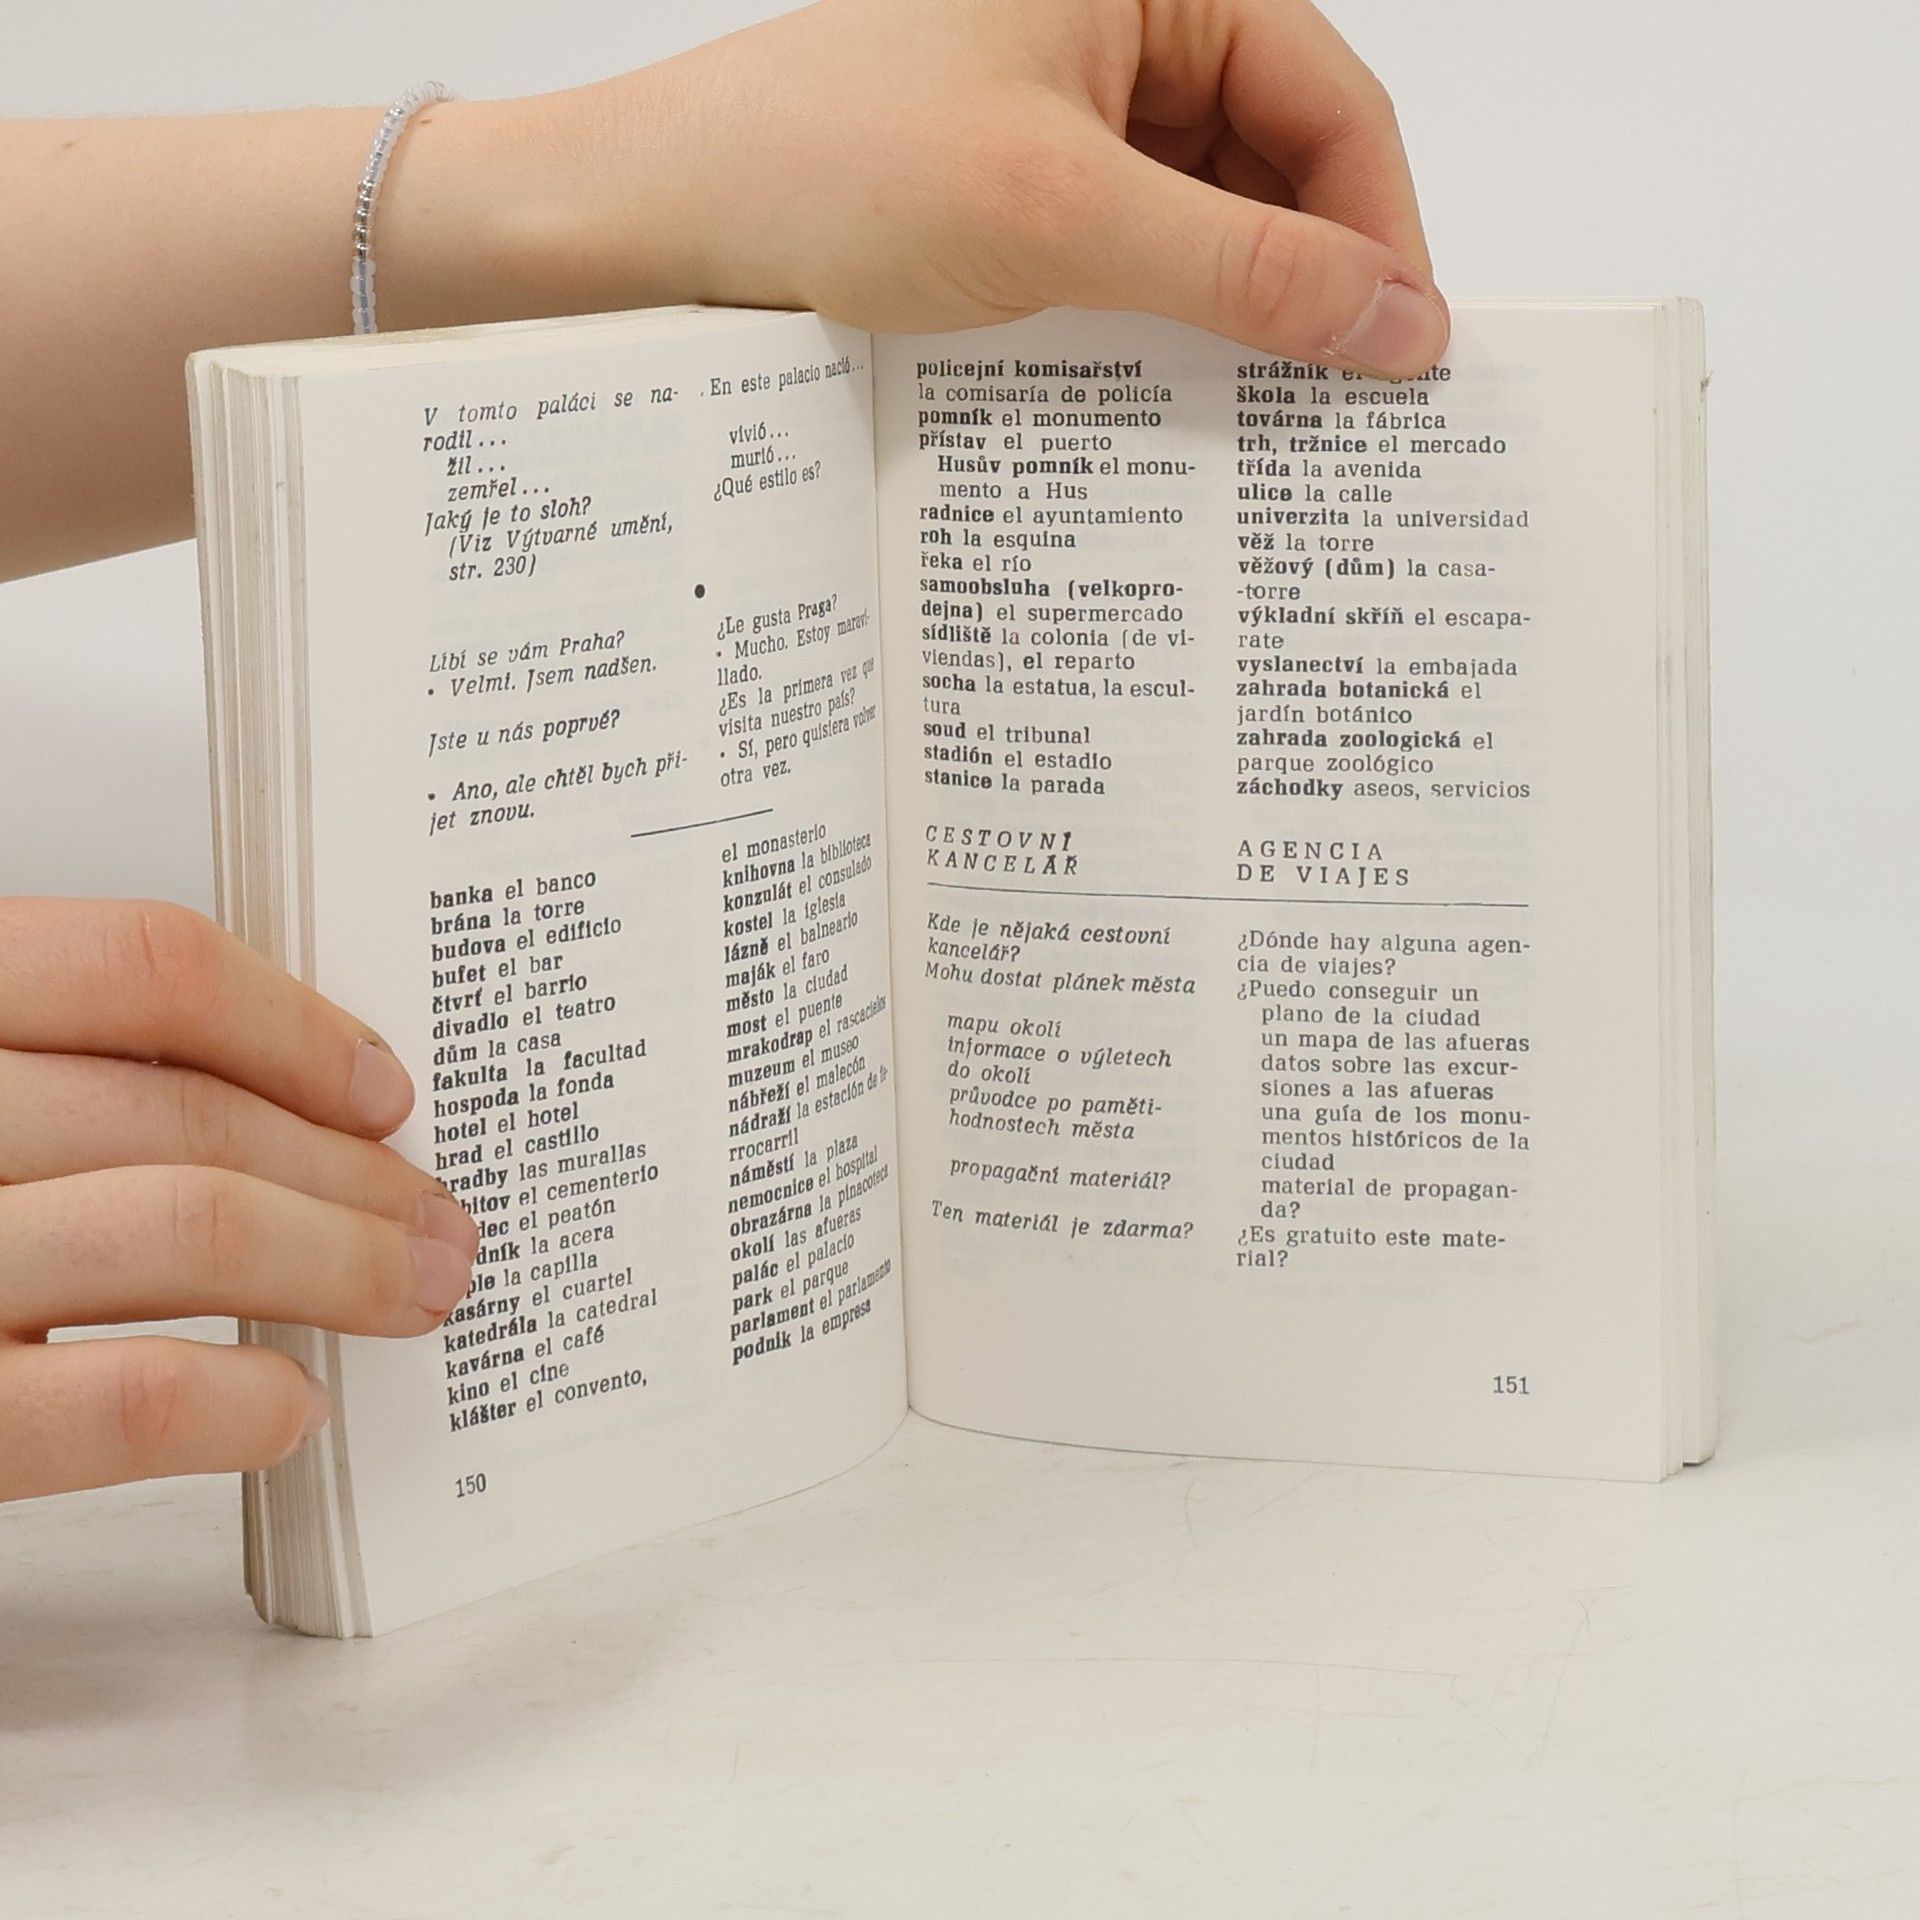 V tomto paláci se na-
rodil...
žil...
zemřel...
Jaký je to sloh?
(Viz Výtvarné umění,
str. 230)
En este palacio nació...
vivió...
murió...
¿Qué estilo es?
Líbí se vám Praha?
• Velmi. Jsem nadšen.
Jste u nás poprvé?
• Ano, ale chtěl bych při-
jet znovu.
¿Le gusta Praga?
• Mucho. Estoy maravi-
llado.
¿Es la primera vez que
visita nuestro país?
• Sí, pero quisiera volver
otra vez.
banka el banco
brána la torre
budova el edificio
bufet el bar
čtvrť el barrio
divadlo el teatro
dům la casa
fakulta la facultad
hospoda la fonda
hotel el hotel
hrad el castillo
hradby las murallas
el cementerio
el peatón
la acera
la capilla
kasárny el cuartel
katedrála la catedral
kavárna el café
kino el cine
klášter el convento,
el monasterio
knihovna la biblioteca
konzulát el consulado
kostel la iglesia
lázně el balneario
maják el faro
město la ciudad
most el puente
mrakodrap el rascacielos
muzeum el museo
nábřeží el malecón
nádraží la estación de fe-
rrocarril
náměstí la plaza
nemocnice el hospital
obrazárna la pinacoteca
okolí las afueras
palác el palacio
park el parque
parlament el parlamento
podnik la empresa
150
policejní komisařství
la comisaría de policía
pomník el monumento
přístav el puerto
Husův pomník el monu-
mento a Hus
radnice el ayuntamiento
roh la esquina
řeka el río
samoobsluha (velkopro-
dejna) el supermercado
sídliště la colonia (de vi-
viendas), el reparto
socha la estatua, la escul-
tura
soud el tribunal
stadión el estadio
stanice la parada
strážník
škola la escuela
továrna la fábrica
trh, tržnice el mercado
třída la avenida
ulice la calle
univerzita la universidad
věž la torre
věžový (dům) la casa-
-torre
výkladní skříň el escapa-
rate
vyslanectví la embajada
zahrada botanická el
jardín botánico
zahrada zoologická el
parque zoológico
záchodky aseos, servicios
CESTOVNÍ
KANCELÁŘ
AGENCIA
DE VIAJES
Kde je nějaká cestovní
kancelář?
Mohu dostat plánek města
mapu okolí
informace o výletech
do okolí
průvodce po paměti-
hodnostech města
propagační materiál?
Ten materiál je zdarma?
¿Dónde hay alguna agen-
cia de viajes?
¿Puedo conseguir un
plano de la ciudad
un mapa de las afueras
datos sobre las excur-
siones a las afueras
una guía de los monu-
mentos históricos de la
ciudad
material de propagan-
da?
¿Es gratuito este mate-
rial?
151